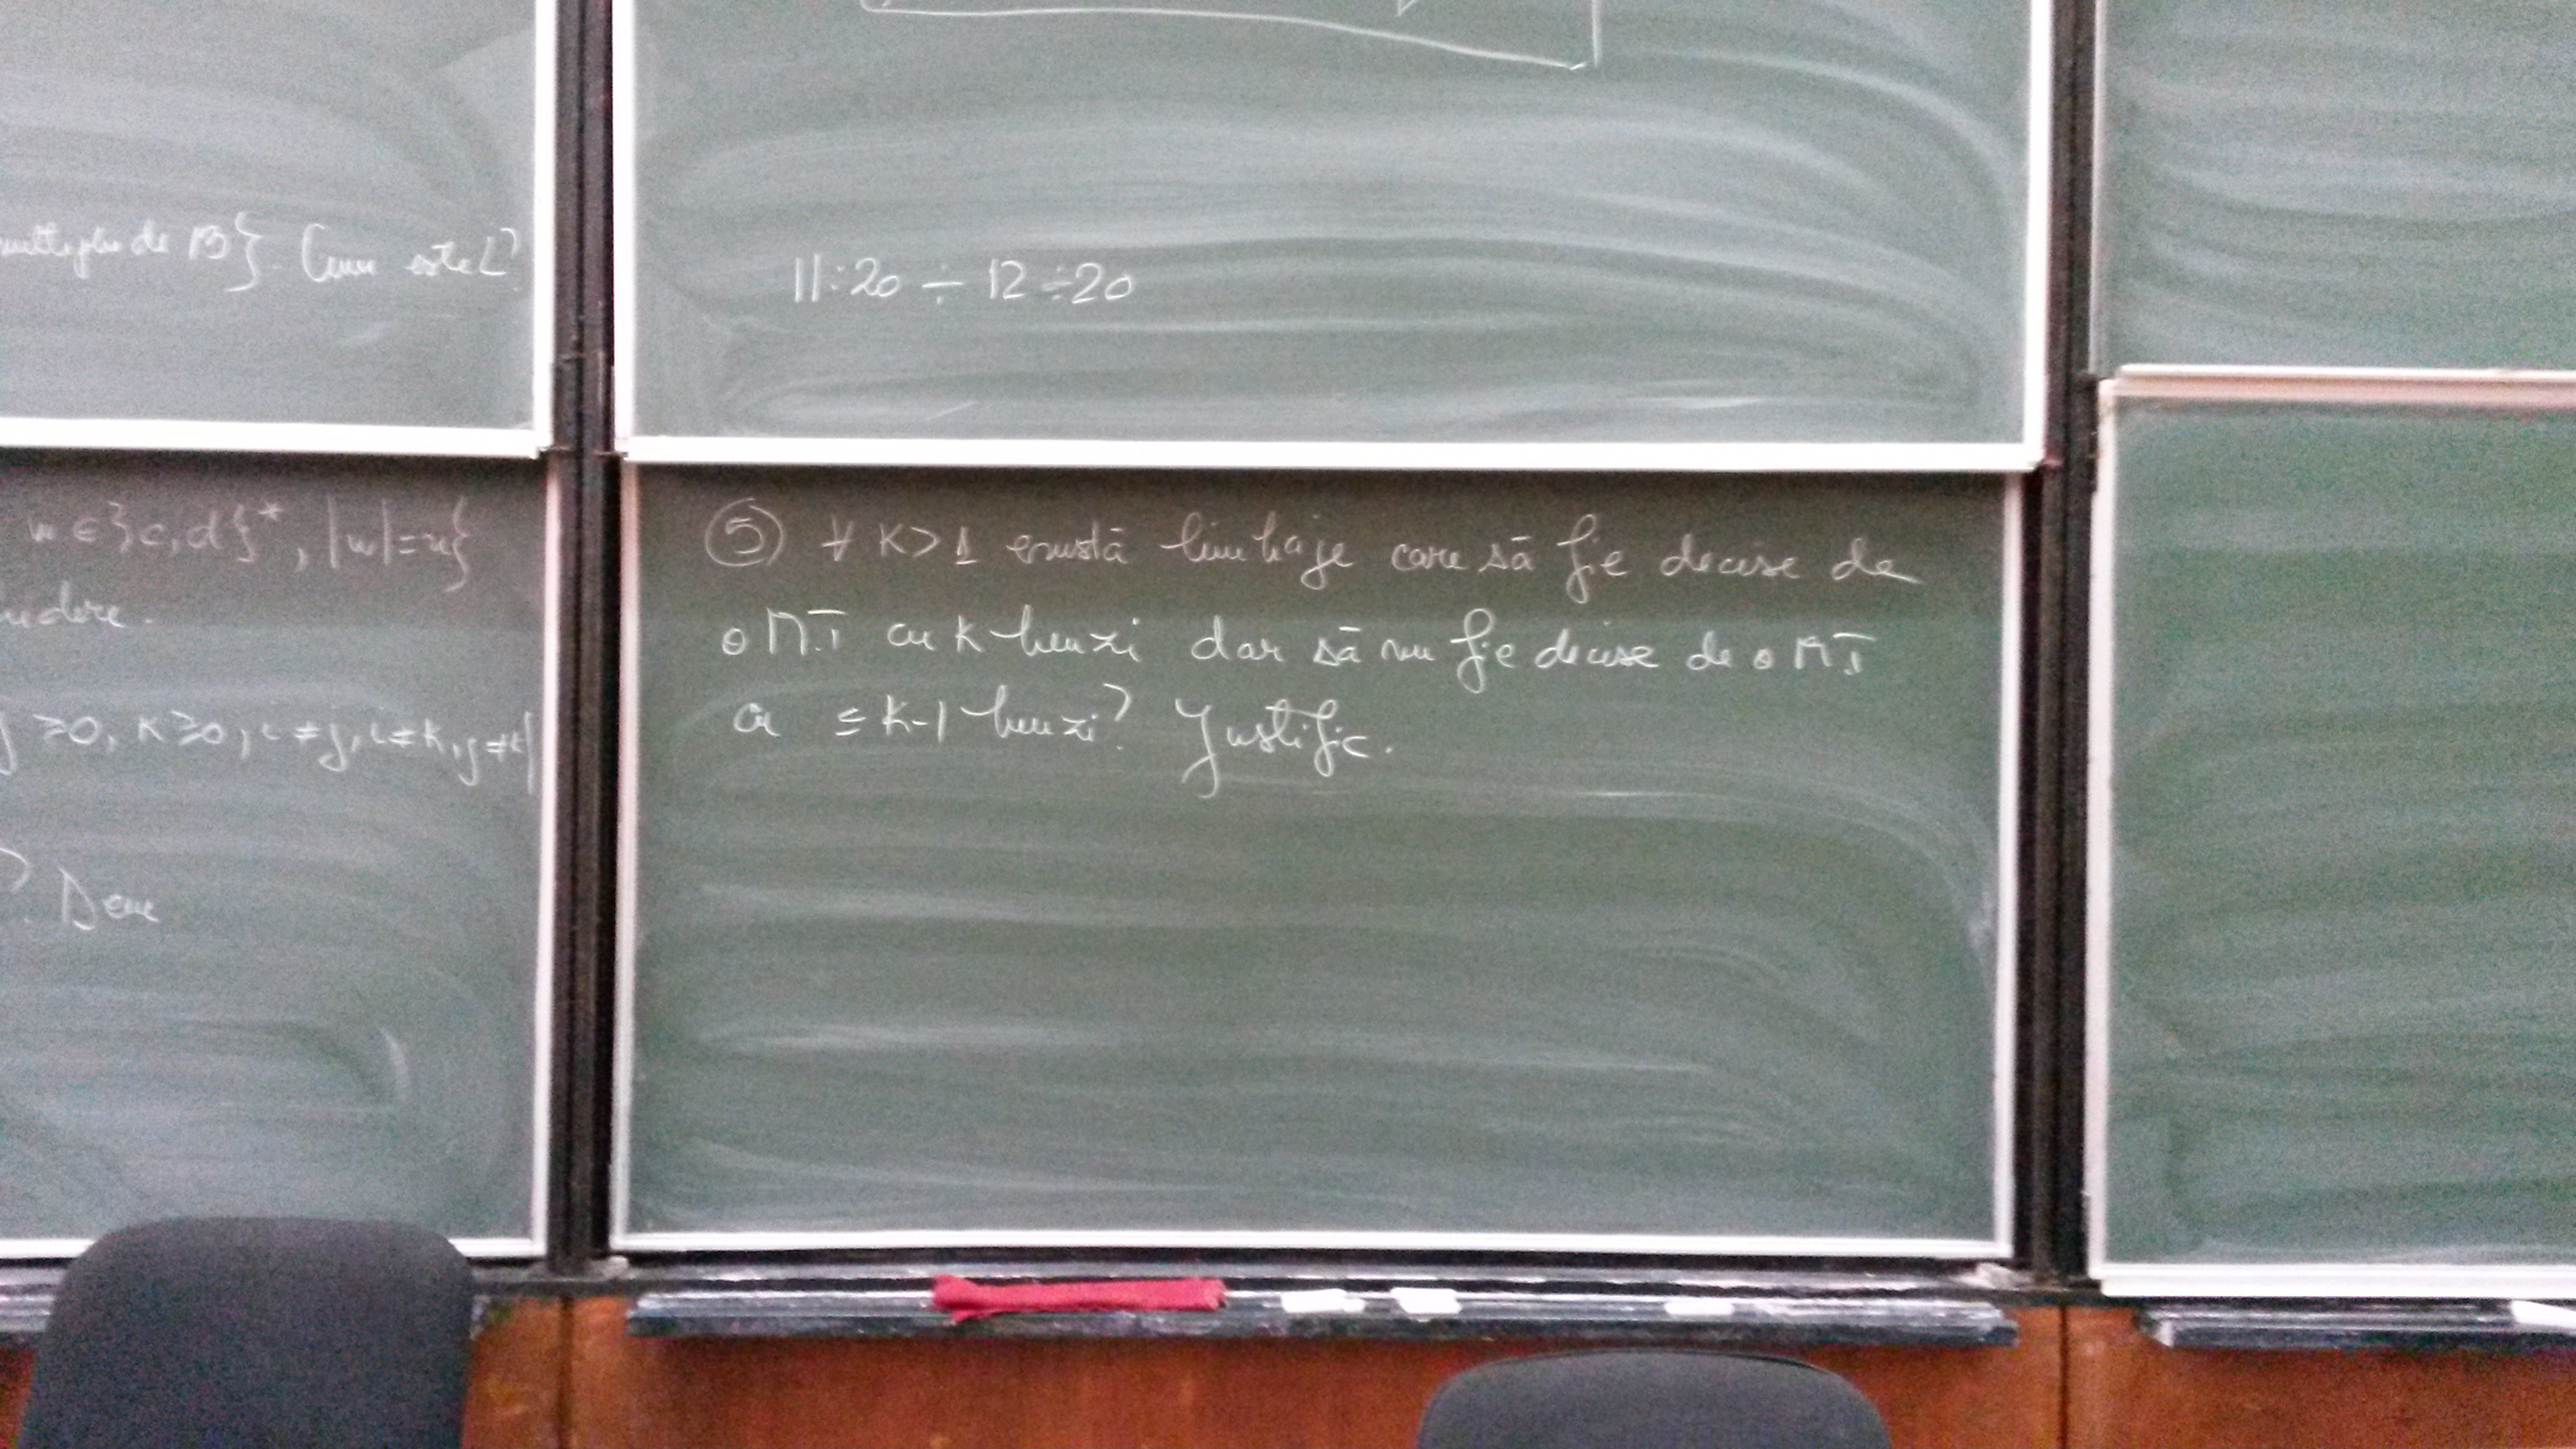 multiplu de 13}. Cum este L?
w ∈ {c,d}*, |w|=n}
≥0, k≥0, i≠j, i≠k, j≠k}
? Dem
11:20 ÷ 12÷20
⑤ ∀ k>1 există limbaje care să fie decise de
o M.T cu k benzi dar să nu fie decise de o M.T
cu ≤ k-1 benzi? Justific.